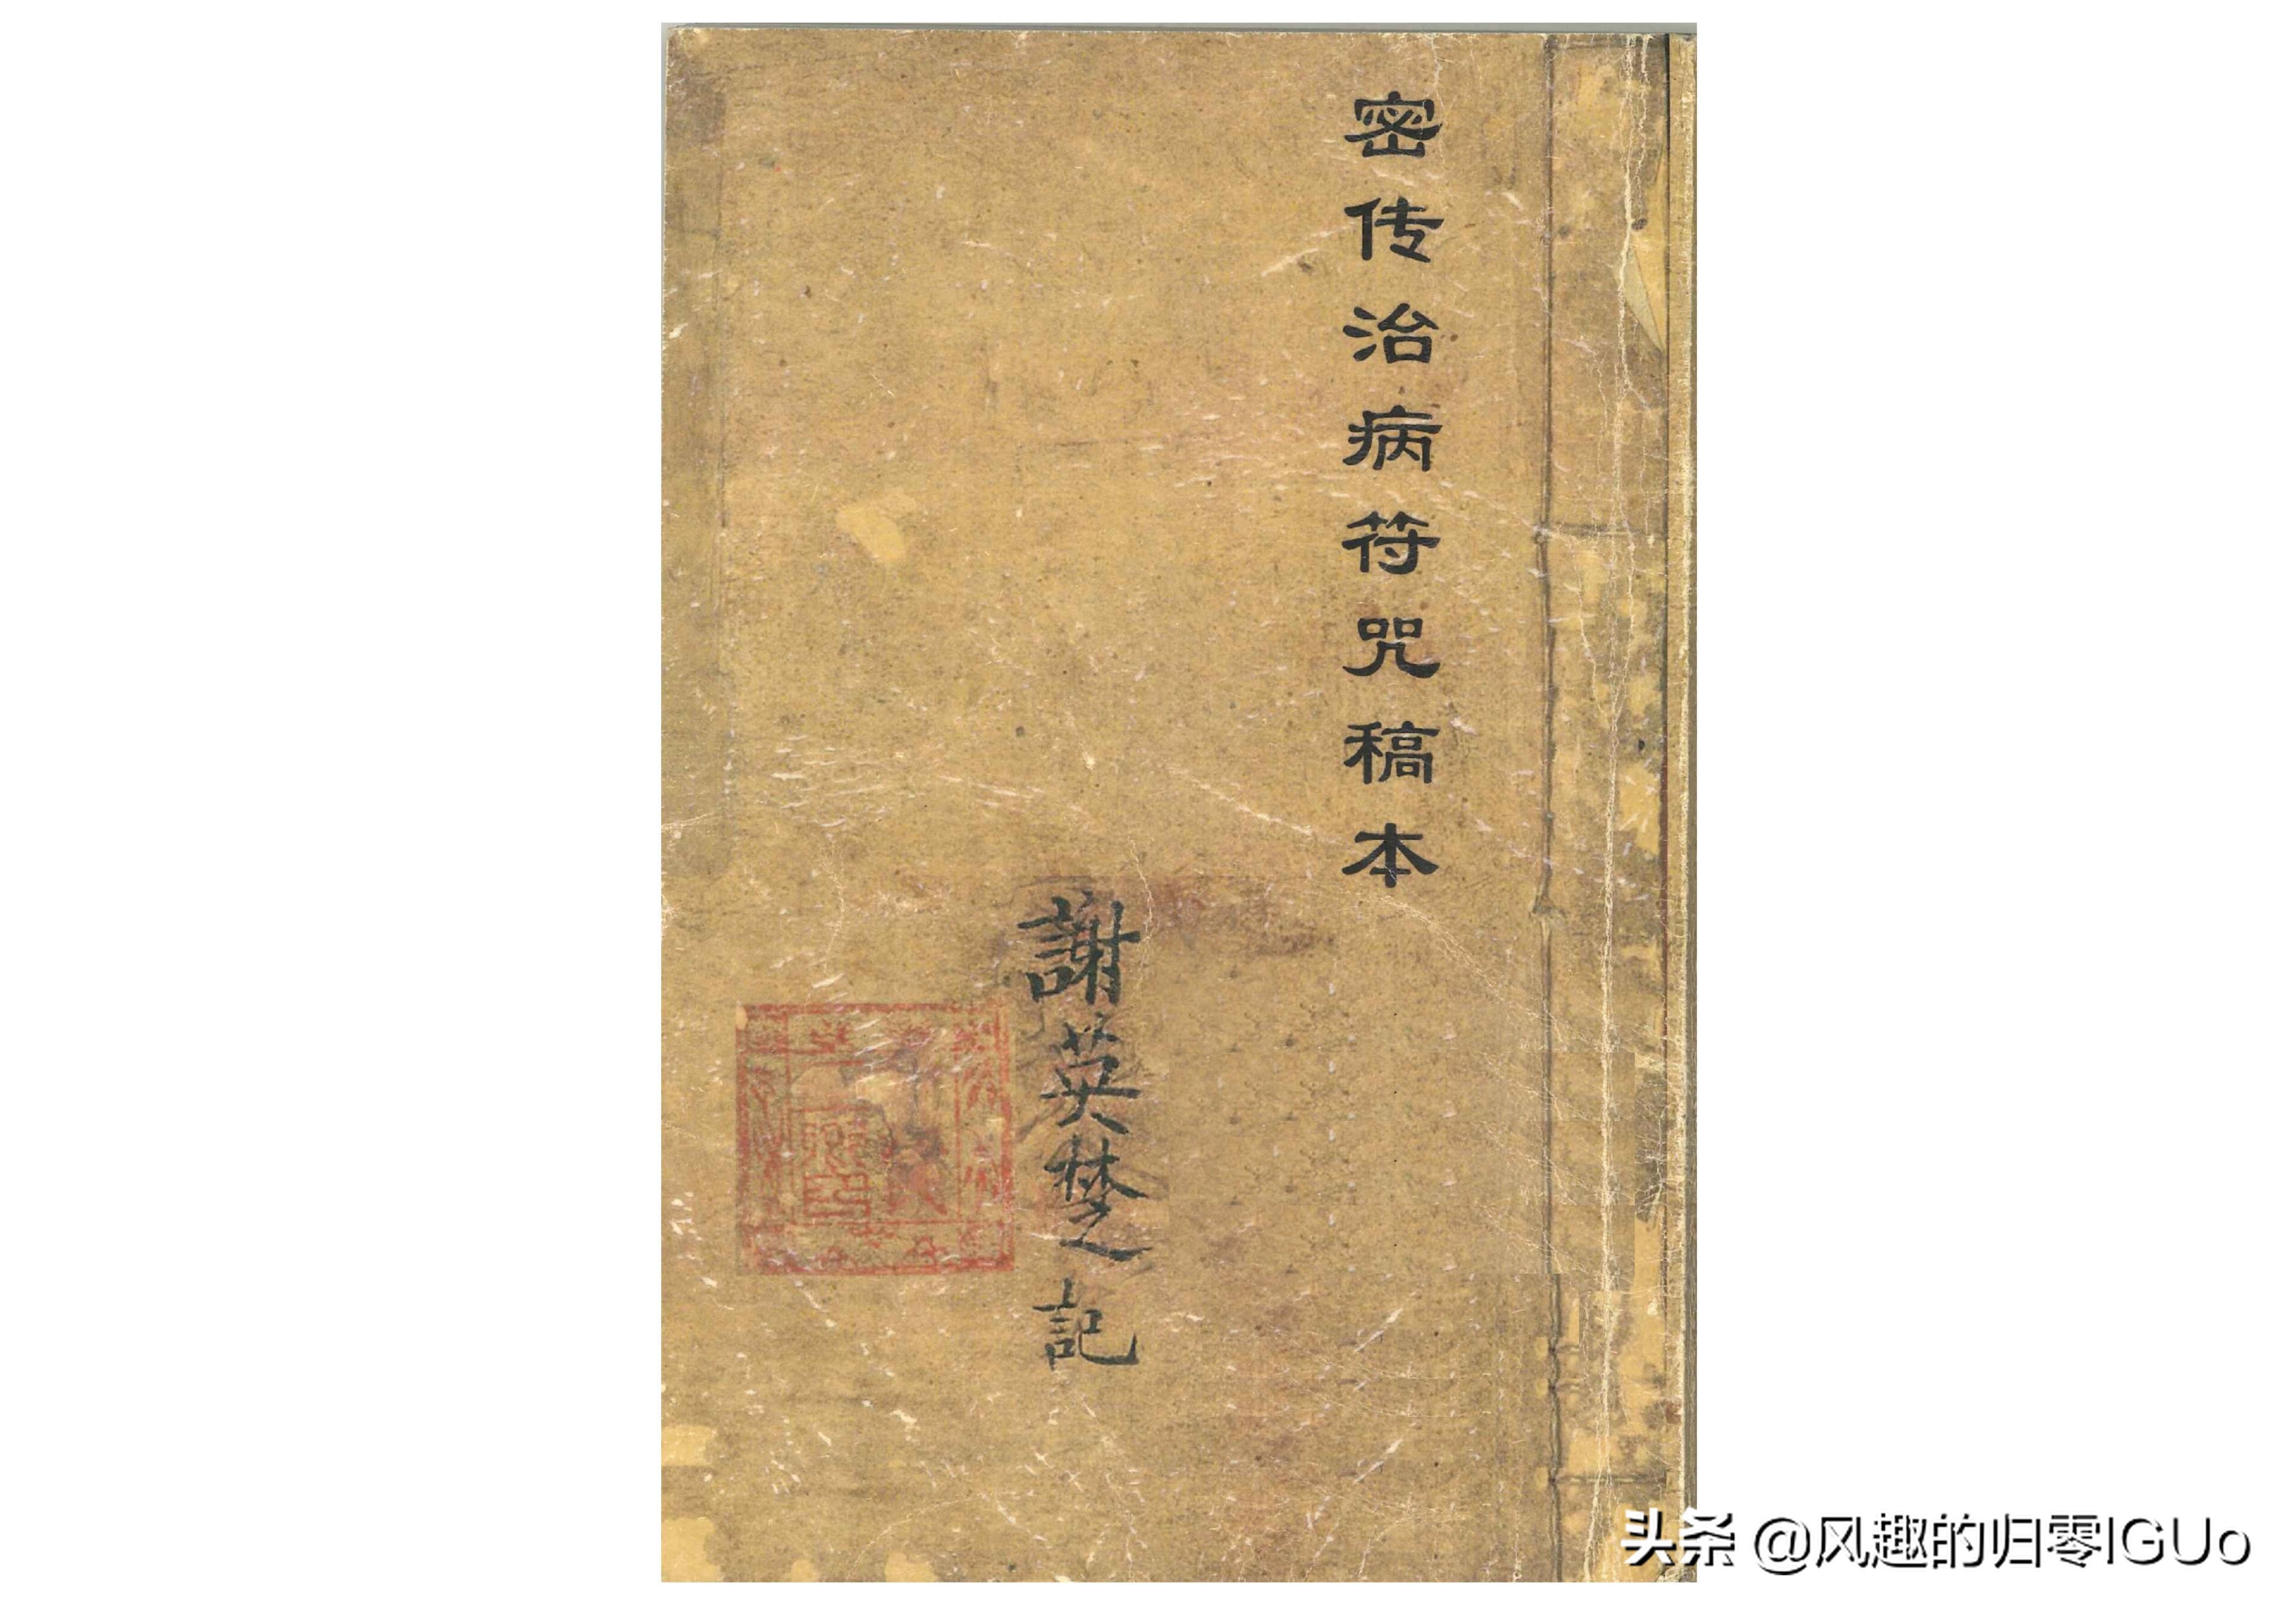 密传治病符咒稿本
謝英楚記
头条 @风趣的归零IGUo